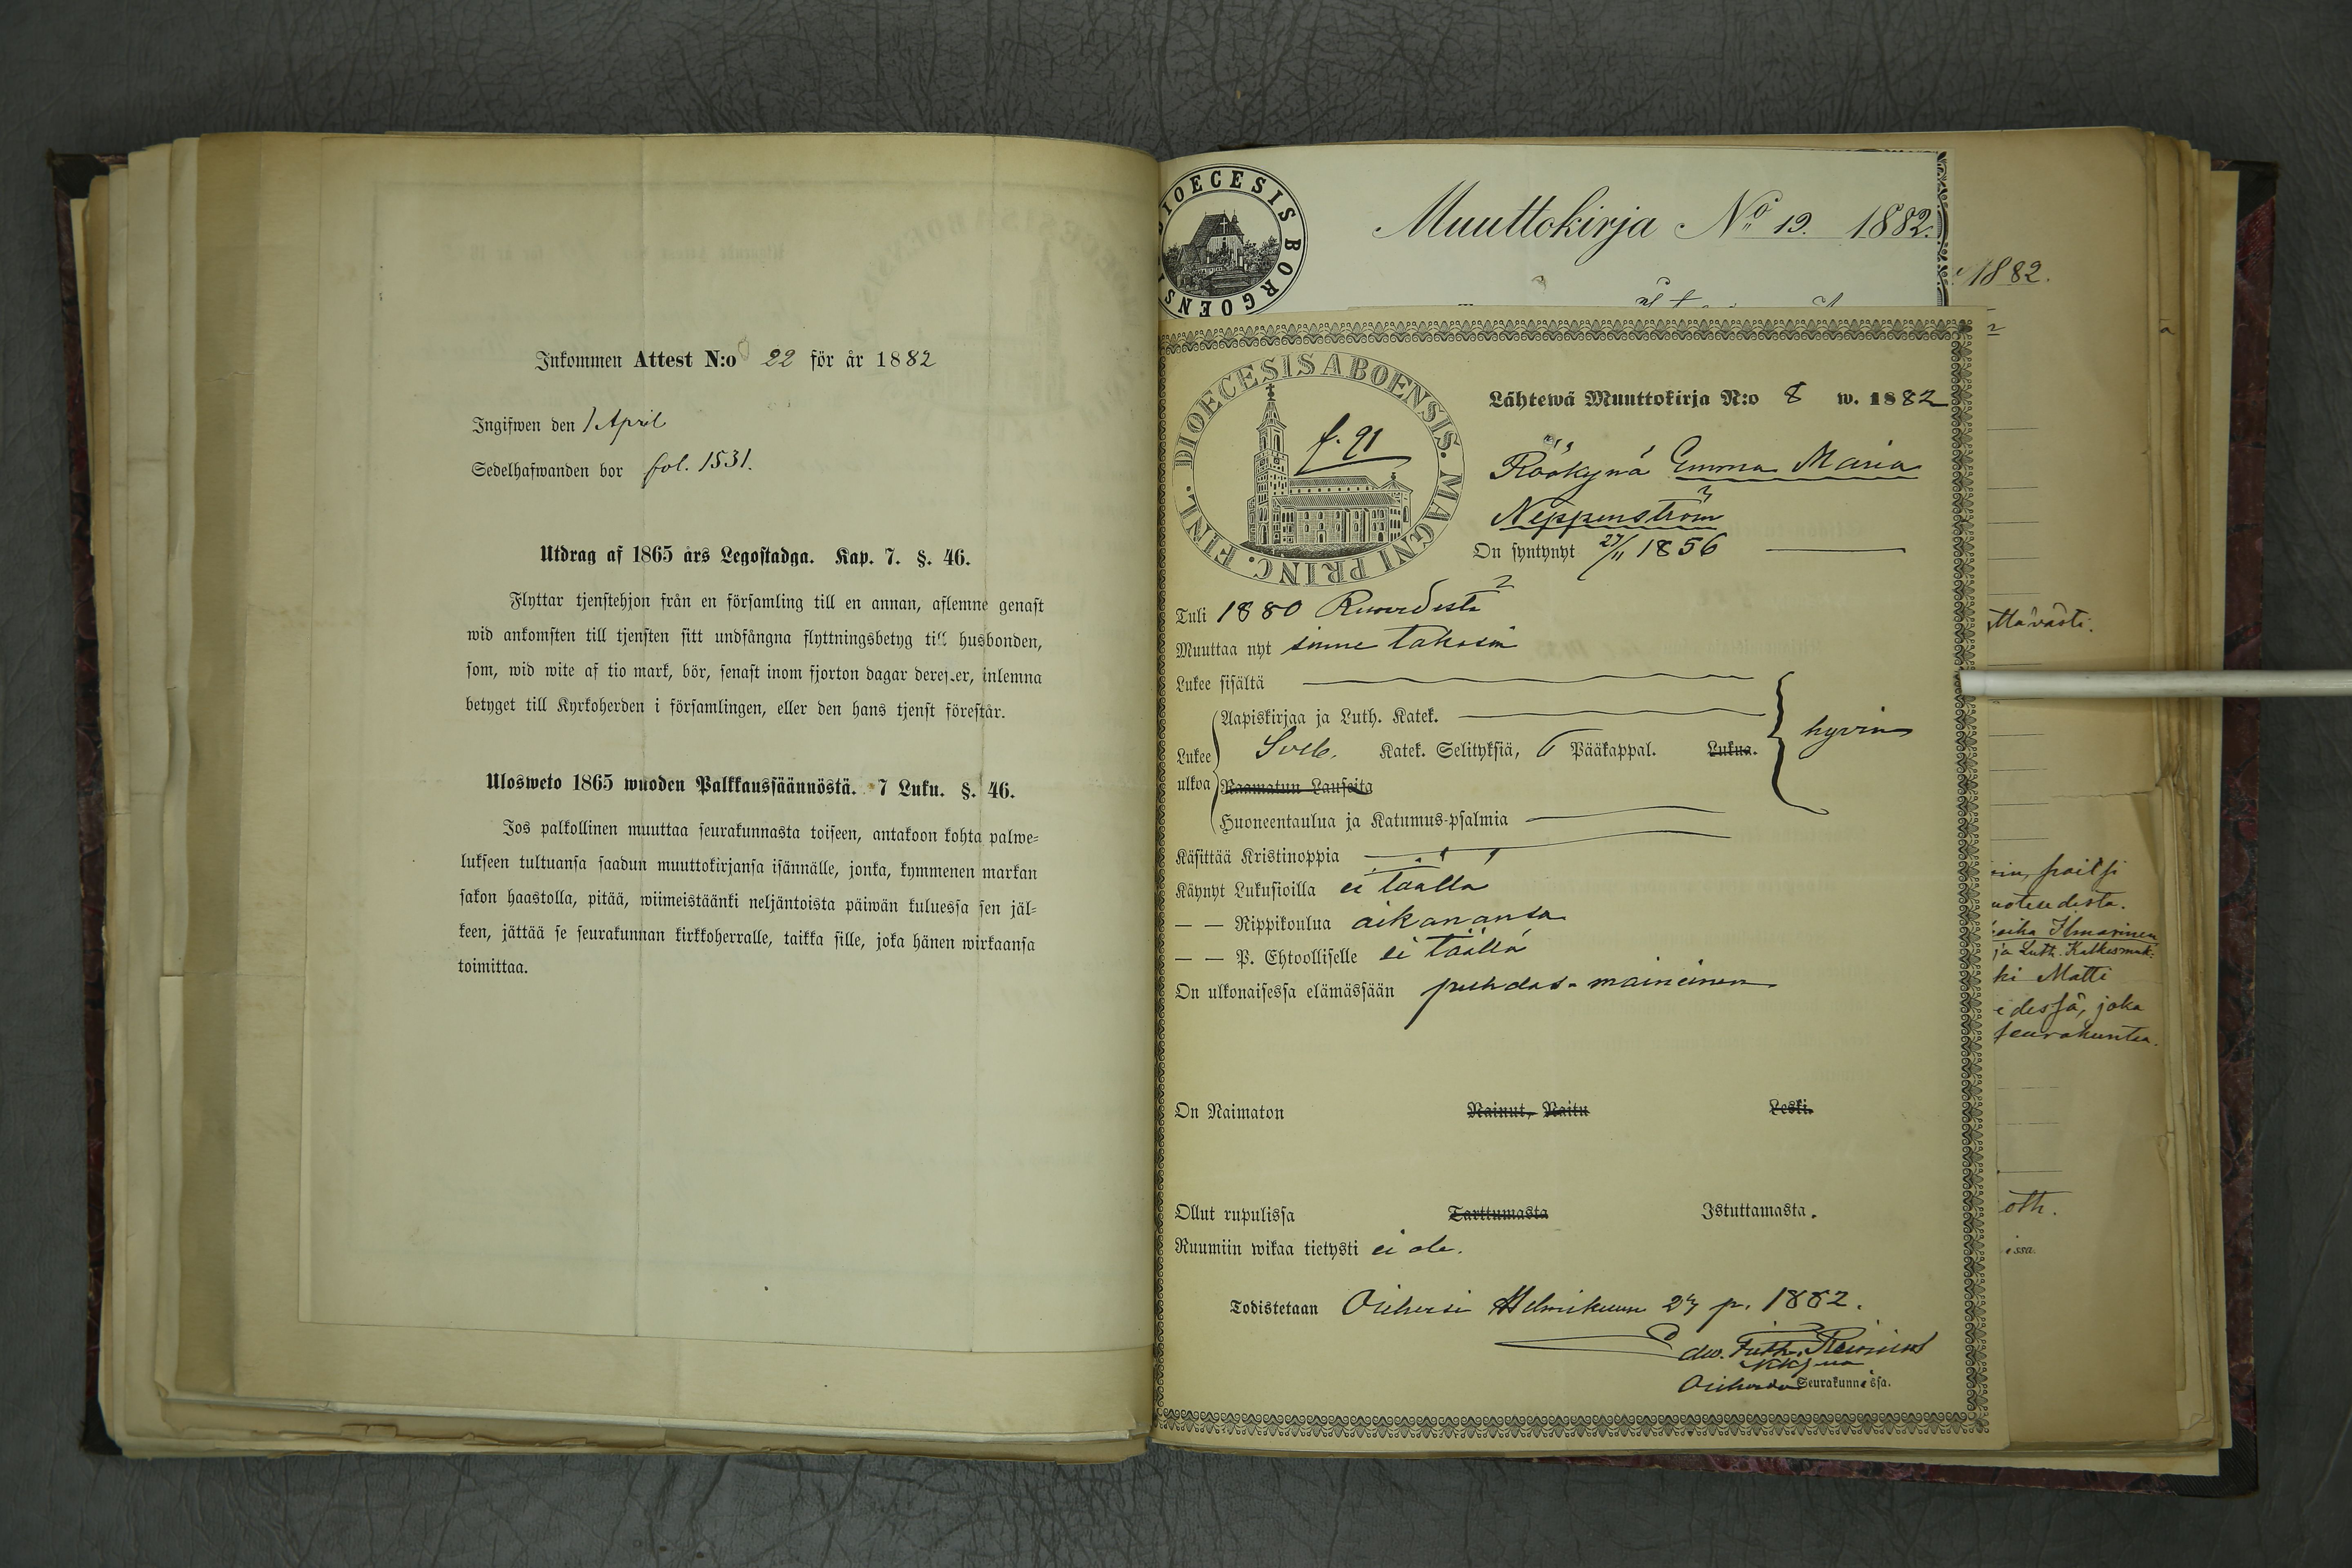 Inkommen Attest N:o 22 för år 1882
Ingifwen den 1 April
Sedelhafwanden bor fol. 1531.
Utdrag af 1865 års Legostadga. Kap. 7. §. 46.
Flyttar tjenstehjon från en församling till en annan, aflemne genast
wid ankomsten till tjensten sitt undfångna flyttningsbetyg till husbonden,
som, wid wite af tio mark, bör, senast inom fjorton dagar derefter, inlemna
betyget till Kyrkoherden i församlingen, eller den hans tjenst förestår.
Ulosweto 1865 wuoden Palkkaussäännöstä. 7 Luku. §. 46.
Jos palkollinen muuttaa seurakunnasta toiseen, antakoon kohta palwe-
lukseen tultuansa saadun muuttokirjansa isännälle, jonka, kymmenen markan
sakon haastolla, pitää, wiimeistäänki neljäntoista päiwän kuluessa sen jäl-
keen, jättää se seurakunnan kirkkoherralle, taikka sille, joka hänen wirkaansa
toimittaa.
DIOECESIS BORGOENSIS
Muuttokirja No 19. 1882.
1882.
DIOECESIS ABOENSIS. MAGNI PRINC. FINL.
f. 91
Lähtewä Muuttokirja N:o 8 w. 1882
Röökynä Emma Maria
Neppenström
On syntynyt 27/11 1856
Tuli 1880
Muuttaa nyt sinne takasin
Lukee sisältä
Aapiskirjaa ja Luth. Katek.
Lukee ulkoa Sveb. Katek. Selityksiä, 6 Pääkappal. Lukua. hyvin
Raamatun Lauseita
Huoneentaulua ja Katumus-psalmia
Käsittää Kristinoppia
Käynyt Lukusioilla ei täällä
— — Rippikoulua aikanansa
— — P. Ehtoolliselle ei täällä
On ulkonaisessa elämässään puhdas-maineinen
On Naimaton Nainut, Naitu Leski.
Ollut rupulissa Tarttumasta Istuttamasta.
Ruumiin wikaa tietysti ei ole.
Todistetaan Helmikuun 27 p. 1882.
Seurakunnassa.
ttävästi.
paitsi
Ilmarinen
ja Luth.
ki Matti
edessä, joka
seurakuntaa.